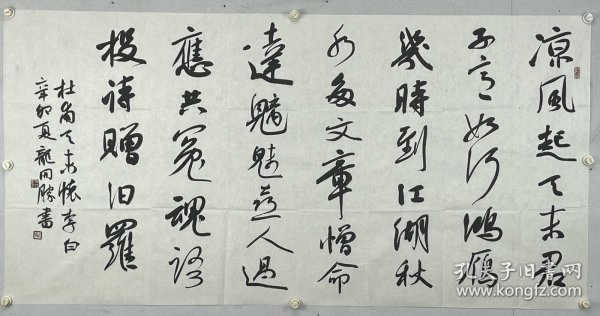 凉風起天末君
子意如何鴻雁
幾時到江湖秋
水多文章憎命
達魑魅喜人過
應共冤魂語
投詩贈汨羅
杜甫天末懷李白
辛卯夏龍開勝書
孔夫子旧书网
www.kongfz.com